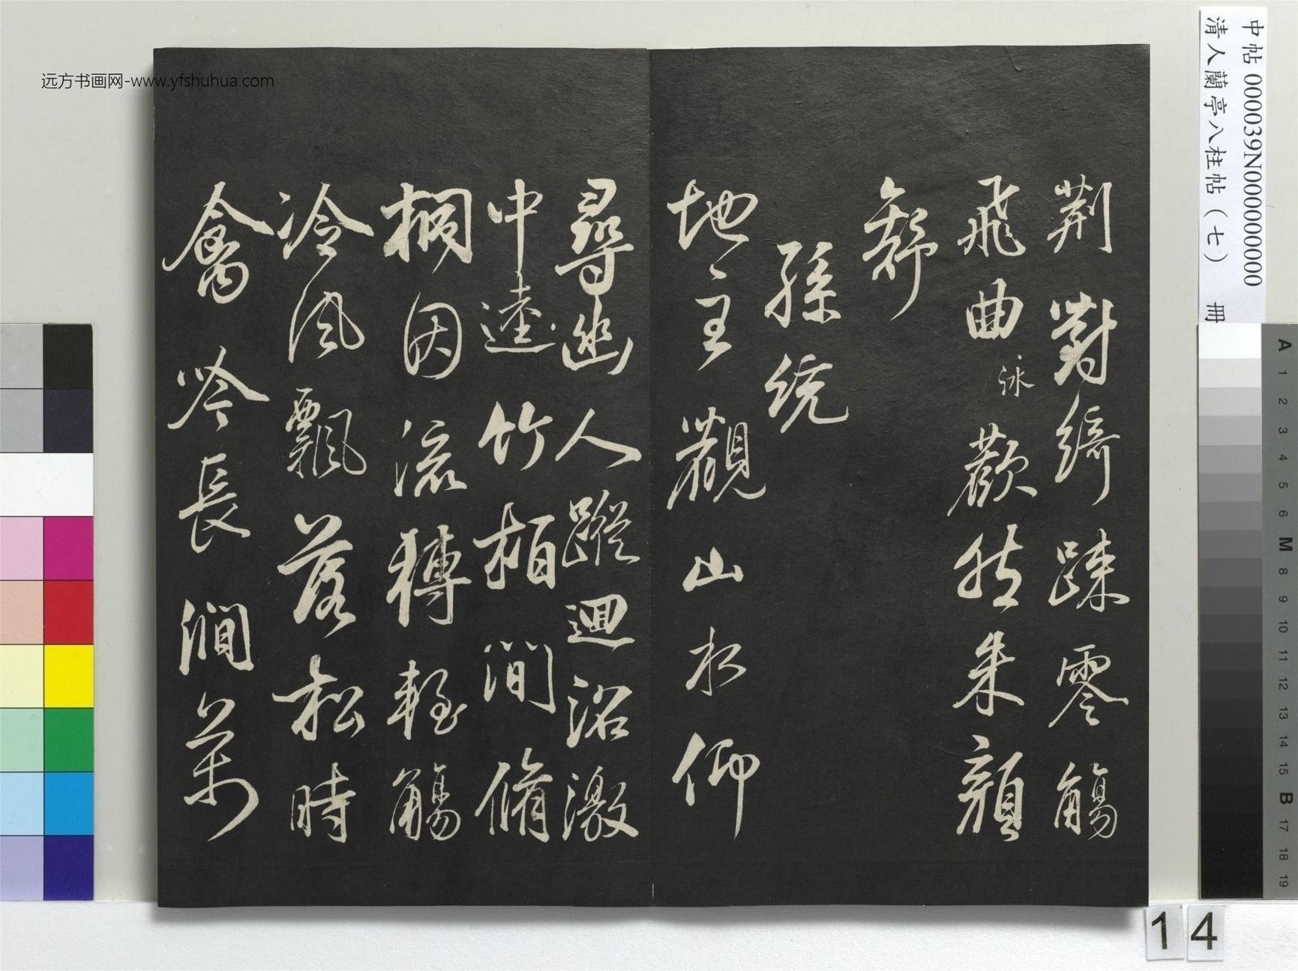 荊對綺疎零觴
飛曲泳歡然朱顏
舒
孫統
地主觀山水仰
尋幽人蹤迴沼激
中逵竹柏間脩
桐因流轉輕觴
冷風飄落松時
禽吟長澗萬
远方书画网-www.yfshuhua.com
中帖 000039N000000000
清人蘭亭八柱帖(七) 冊
A 1 2 3 4 5 6 M 8 9 10 11 12 13 14 15 B 17 18 19
14